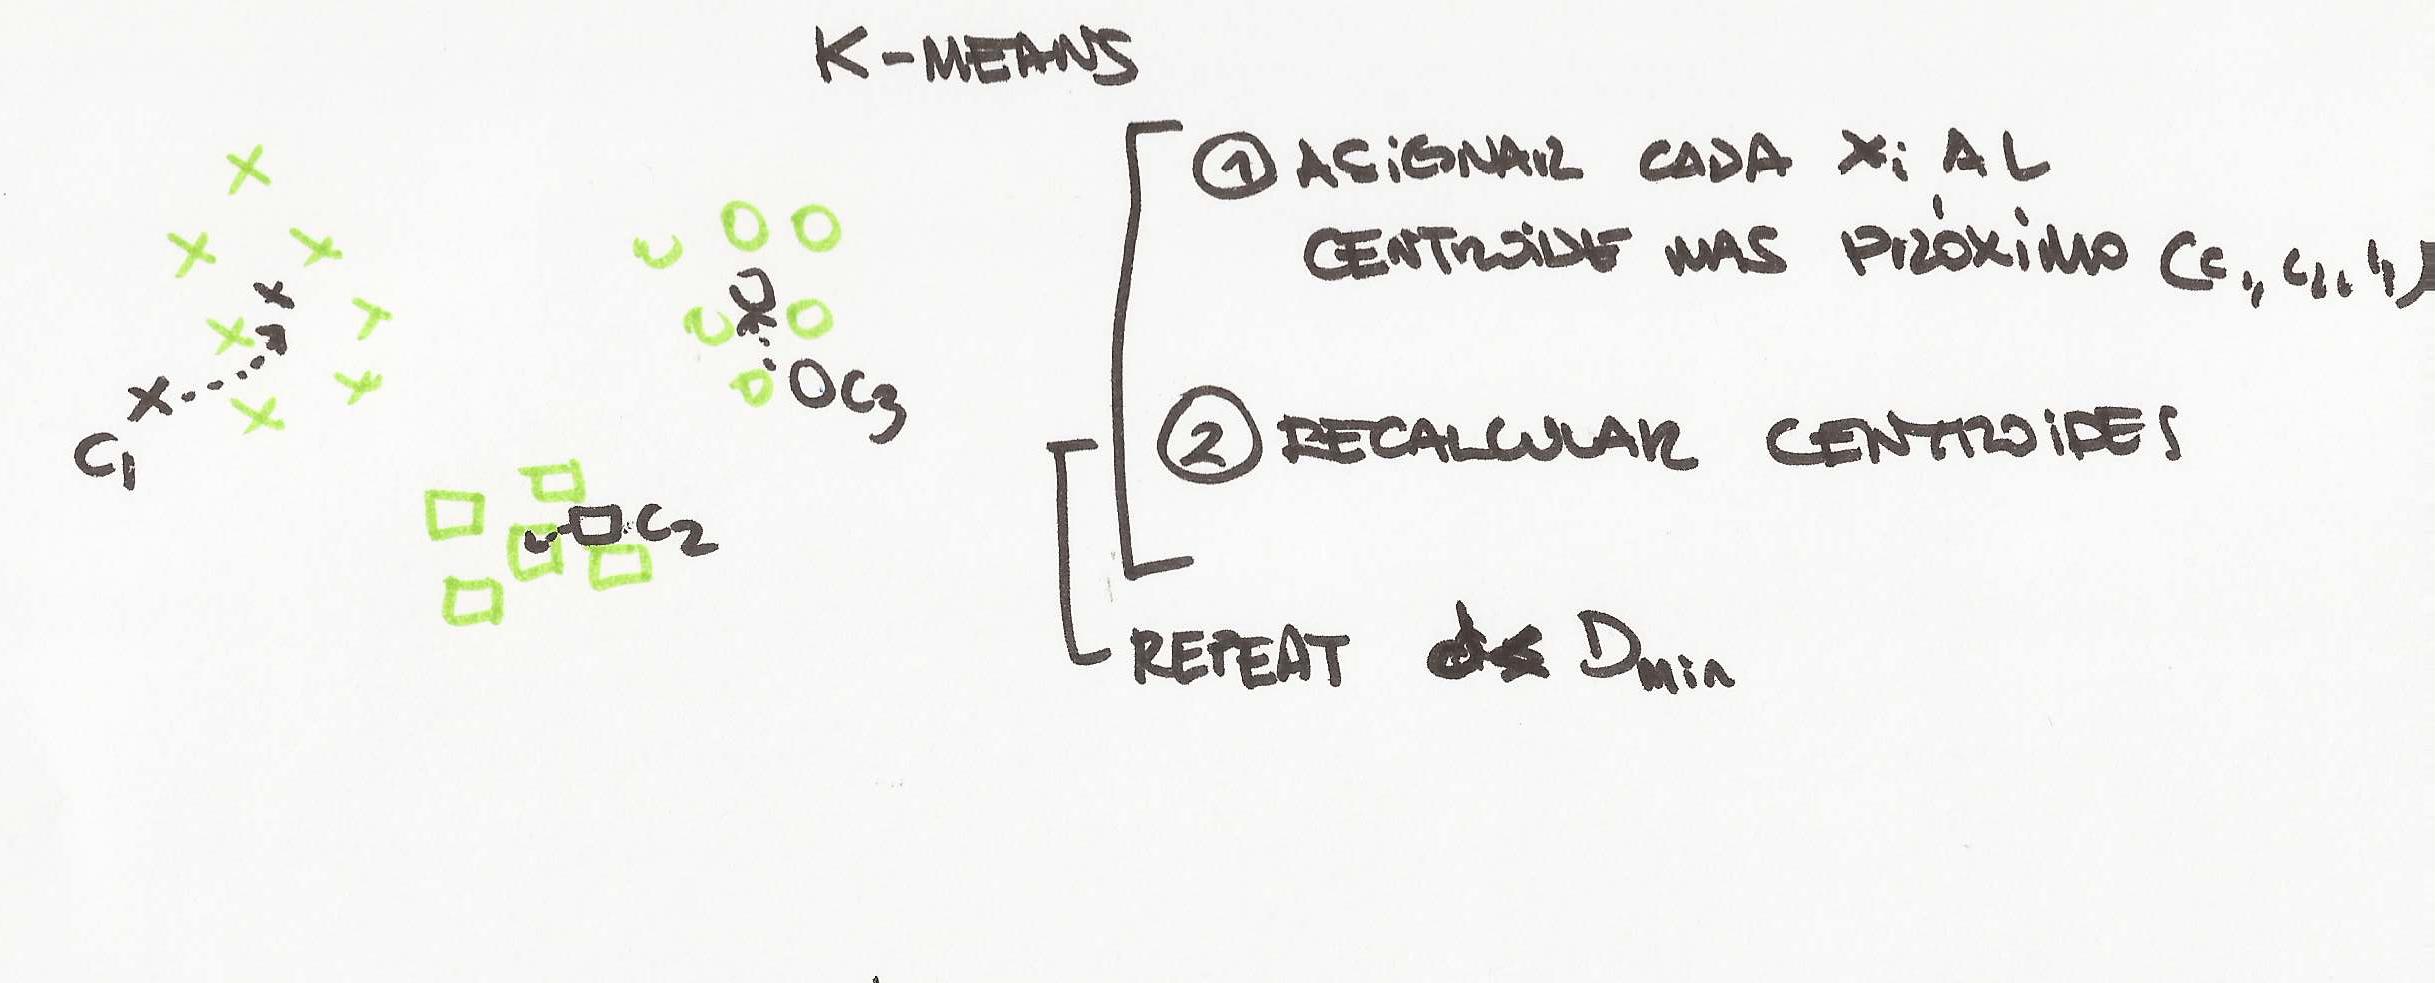 K-MEANS
① ASIGNAR CADA Xi AL
CENTROIDE MAS PRÓXIMO
C1
C3
C2
② RECALCULAR CENTROIDES
REPEAT d≤ Dmin